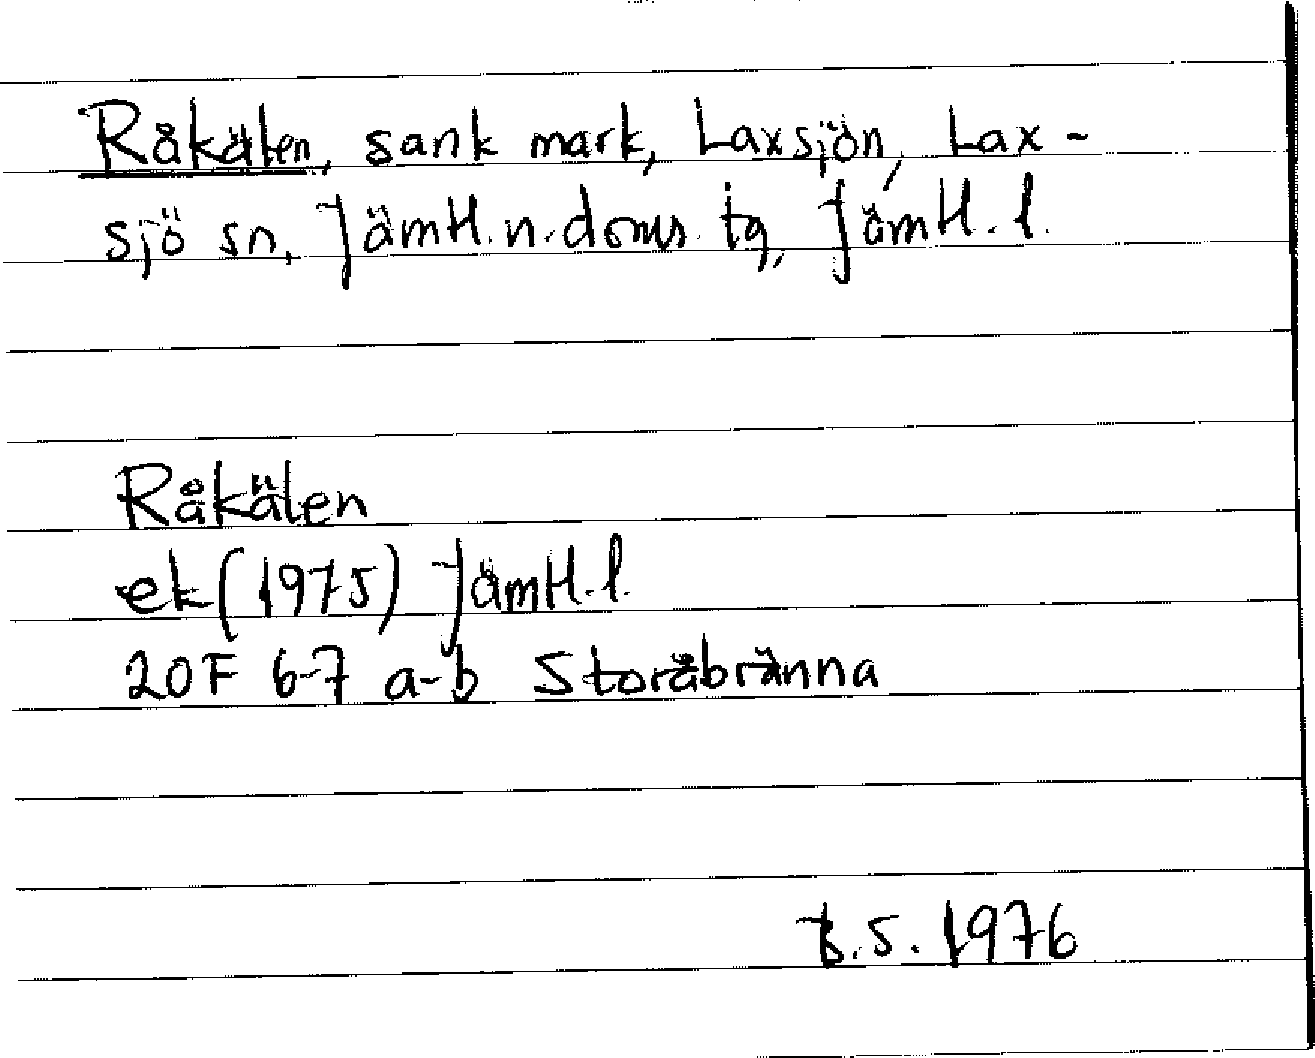 Råkälen, sank mark, Laxsjön, Lax-
sjö sn, Jämtl. n. doms. tg, Jämtl. l.
Råkälen
ek (1975) Jämtl. l.
20F 6-7 a-b Storåbränna
B.S. 1976